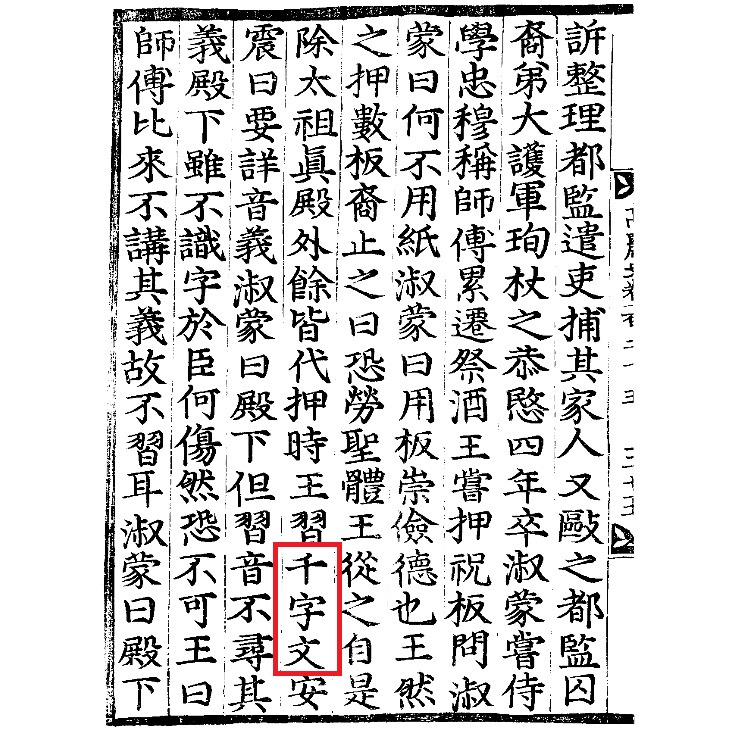 訢整理都監遣吏捕其家人又毆之都監囚
裔弟大護軍珣杖之恭愍四年卒淑蒙嘗侍
學忠穆稱師傅累遷祭酒王嘗押祝板問淑
蒙曰何不用紙淑蒙曰用板崇儉德也王然
之押數板裔止之曰恐勞聖體王從之自是
除太祖眞殿外餘皆代押時王習千字文安
震曰要詳音義淑蒙曰殿下但習音不尋其
義殿下雖不識字於臣何傷然恐不可王曰
師傅比來不講其義故不習耳淑蒙曰殿下